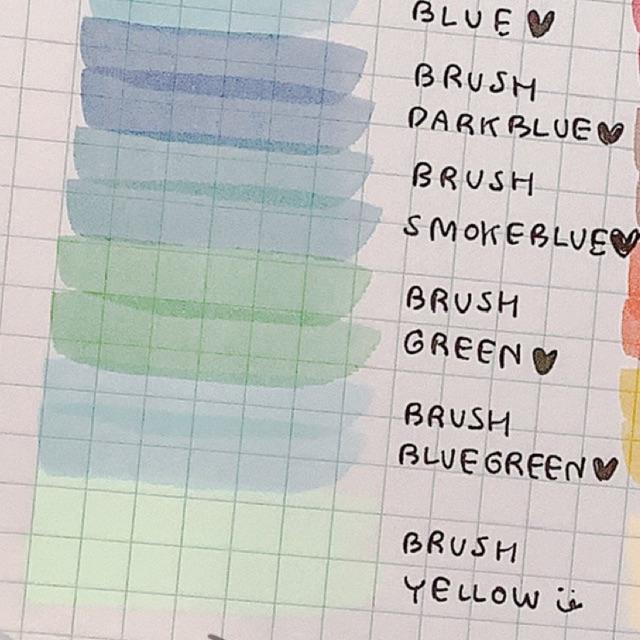 BLUE ♥
BRUSH
DARKBLUE ♥
BRUSH
SMOKEBLUE ♥
BRUSH
GREEN ♥
BRUSH
BLUEGREEN ♥
BRUSH
YELLOW ü